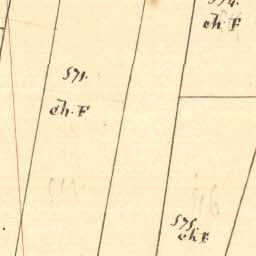 574.
Ch. F
571.
Ch. F
575.
Ch F.